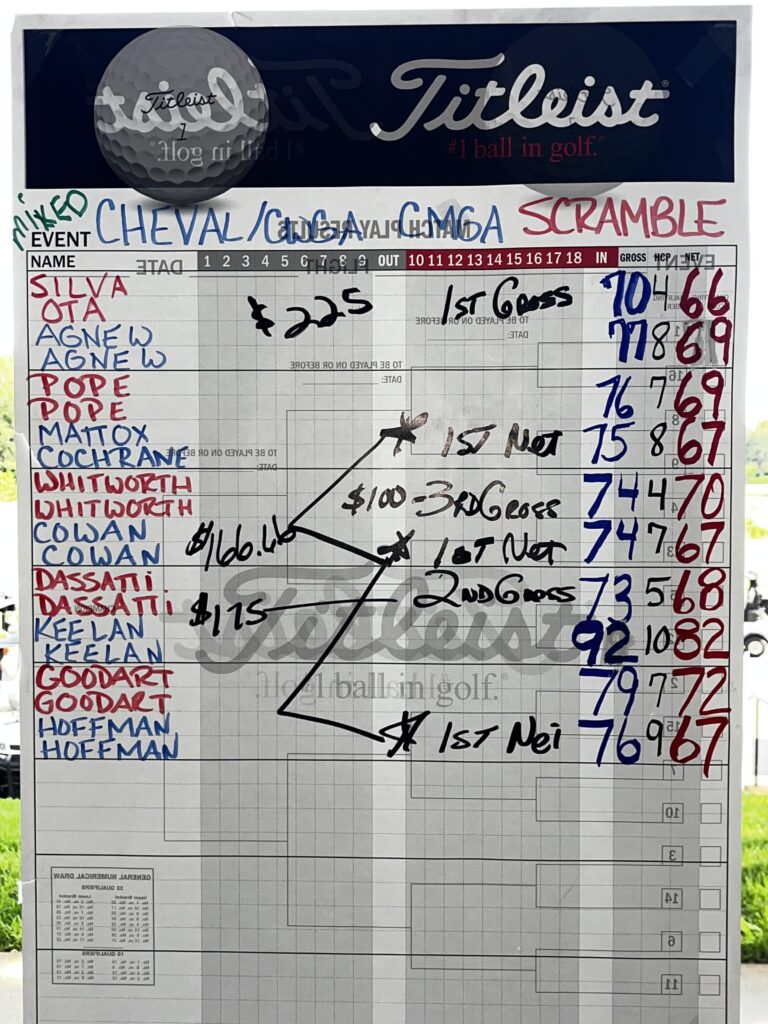 Titleist
Titleist
1
#1 ball in golf.®
MIXED
EVENT CHEVAL/CWGA CMGA SCRAMBLE
NAME 1 2 3 4 5 6 7 8 9 OUT 10 11 12 13 14 15 16 17 18 IN GROSS HCP NET
SILVA
OTA $225 1ST GROSS 70 4 66
AGNEW
AGNEW 77 8 69
POPE
POPE 76 7 69
MATTOX
COCHRANE 1ST Net 75 8 67
WHITWORTH
WHITWORTH $100 - 3RD GROSS 74 4 70
COWAN
COWAN $166.66 1ST Net 74 7 67
DASSATTI
DASSATTI $175 2ND GROSS 73 5 68
KEELAN
KEELAN 92 10 82
GOODART
GOODART 79 7 72
HOFFMAN
HOFFMAN 1ST Net 76 9 67
Titleist
#1 ball in golf.®